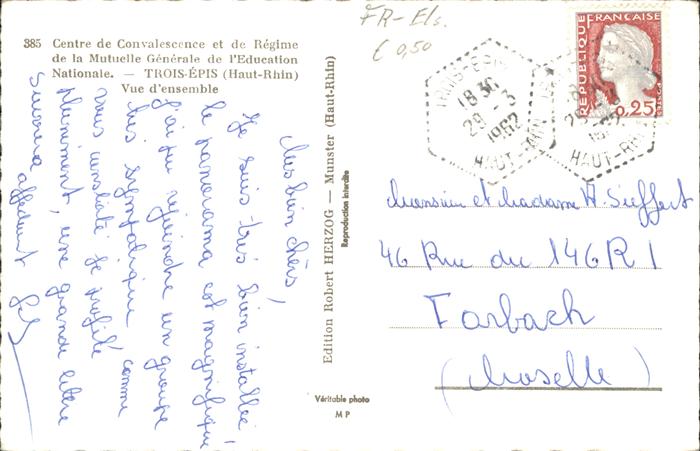 FR-Els.
€ 0,50
385 Centre de Convalescence et de Régime
de la Mutuelle Générale de l'Education
Nationale. — TROIS-ÉPIS (Haut-Rhin)
Vue d'ensemble
mes bien chers,
Je suis très bien installée,
le panorama est magnifique
j'ai pu rejoindre un groupe
très sympathique comme
vous constatez je profite
pleinement, une grande lettre
suivra affectueux
Edition Robert HERZOG — Munster (Haut-Rhin)
Reproduction interdite
Véritable photo
M P
REPUBLIQUE FRANCAISE
0,25
POSTES
TROIS-EPIS
18 30
29 - 3
1962
HAUT-RHIN
HAUT-RHIN
Monsieur et Madame A Sieffert
46 Rue du 146 R I
Forbach
(Moselle)